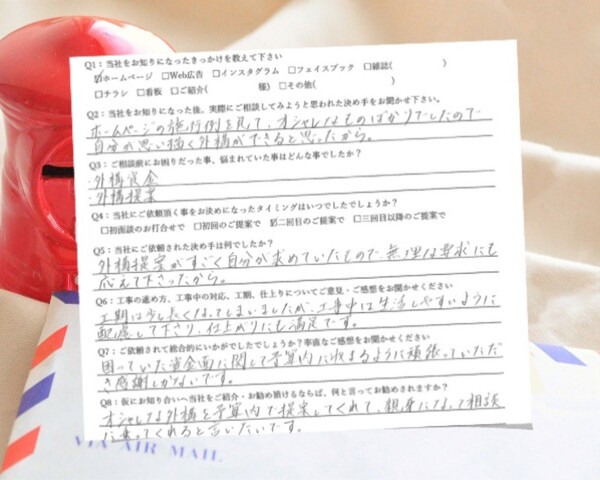 Q1：当社をお知りになったきっかけを教えて下さい
☑ホームページ □Web広告 □インスタグラム □フェイスブック □雑誌( )
□チラシ □看板 □ご紹介( 様) □その他( )
Q2：当社をお知りになった後、実際にご相談してみようと思われた決め手をお聞かせ下さい。
ホームページの施行例を見て、オシャレなものばかりでしたので
自分が思い描く外構ができると思ったから。
Q3：ご相談前にお困りだった事、悩まれていた事はどんな事でしたか？
・外構資金
・外構提案
Q4：当社にご依頼頂く事をお決めになったタイミングはいつでしたでしょうか？
□初面談のお打合せで □初回のご提案で ☑二回目のご提案で □三回目以降のご提案で
Q5：当社にご依頼された決め手は何でしたか？
外構提案がすごく自分が求めていたもので、無理な要求にも
応えて下さったから。
Q6：工事の進め方、工事中の対応、工期、仕上りについてご意見・ご感想をお聞かせください
工期は少し長くなってしまいましたが、工事中は生活しやすいように
配慮して下さり、仕上がりにも満足です。
Q7：ご依頼されて総合的にいかがでしたでしょうか？率直なご感想をお聞かせください
困っていた資金面に関して予算内に収まるように頑張っていただ
き感謝しかないです。
Q8：仮にお知り合いへ当社をご紹介・お勧め頂けるならば、何と言ってお勧めされますか？
オシャレな外構を予算内で提案してくれて、親身になって相談
に乗ってくれると言いたいです。
VIA AIR MAIL